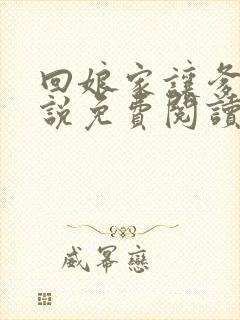 回娘家讓爹
說免費閱讀
威幂戀